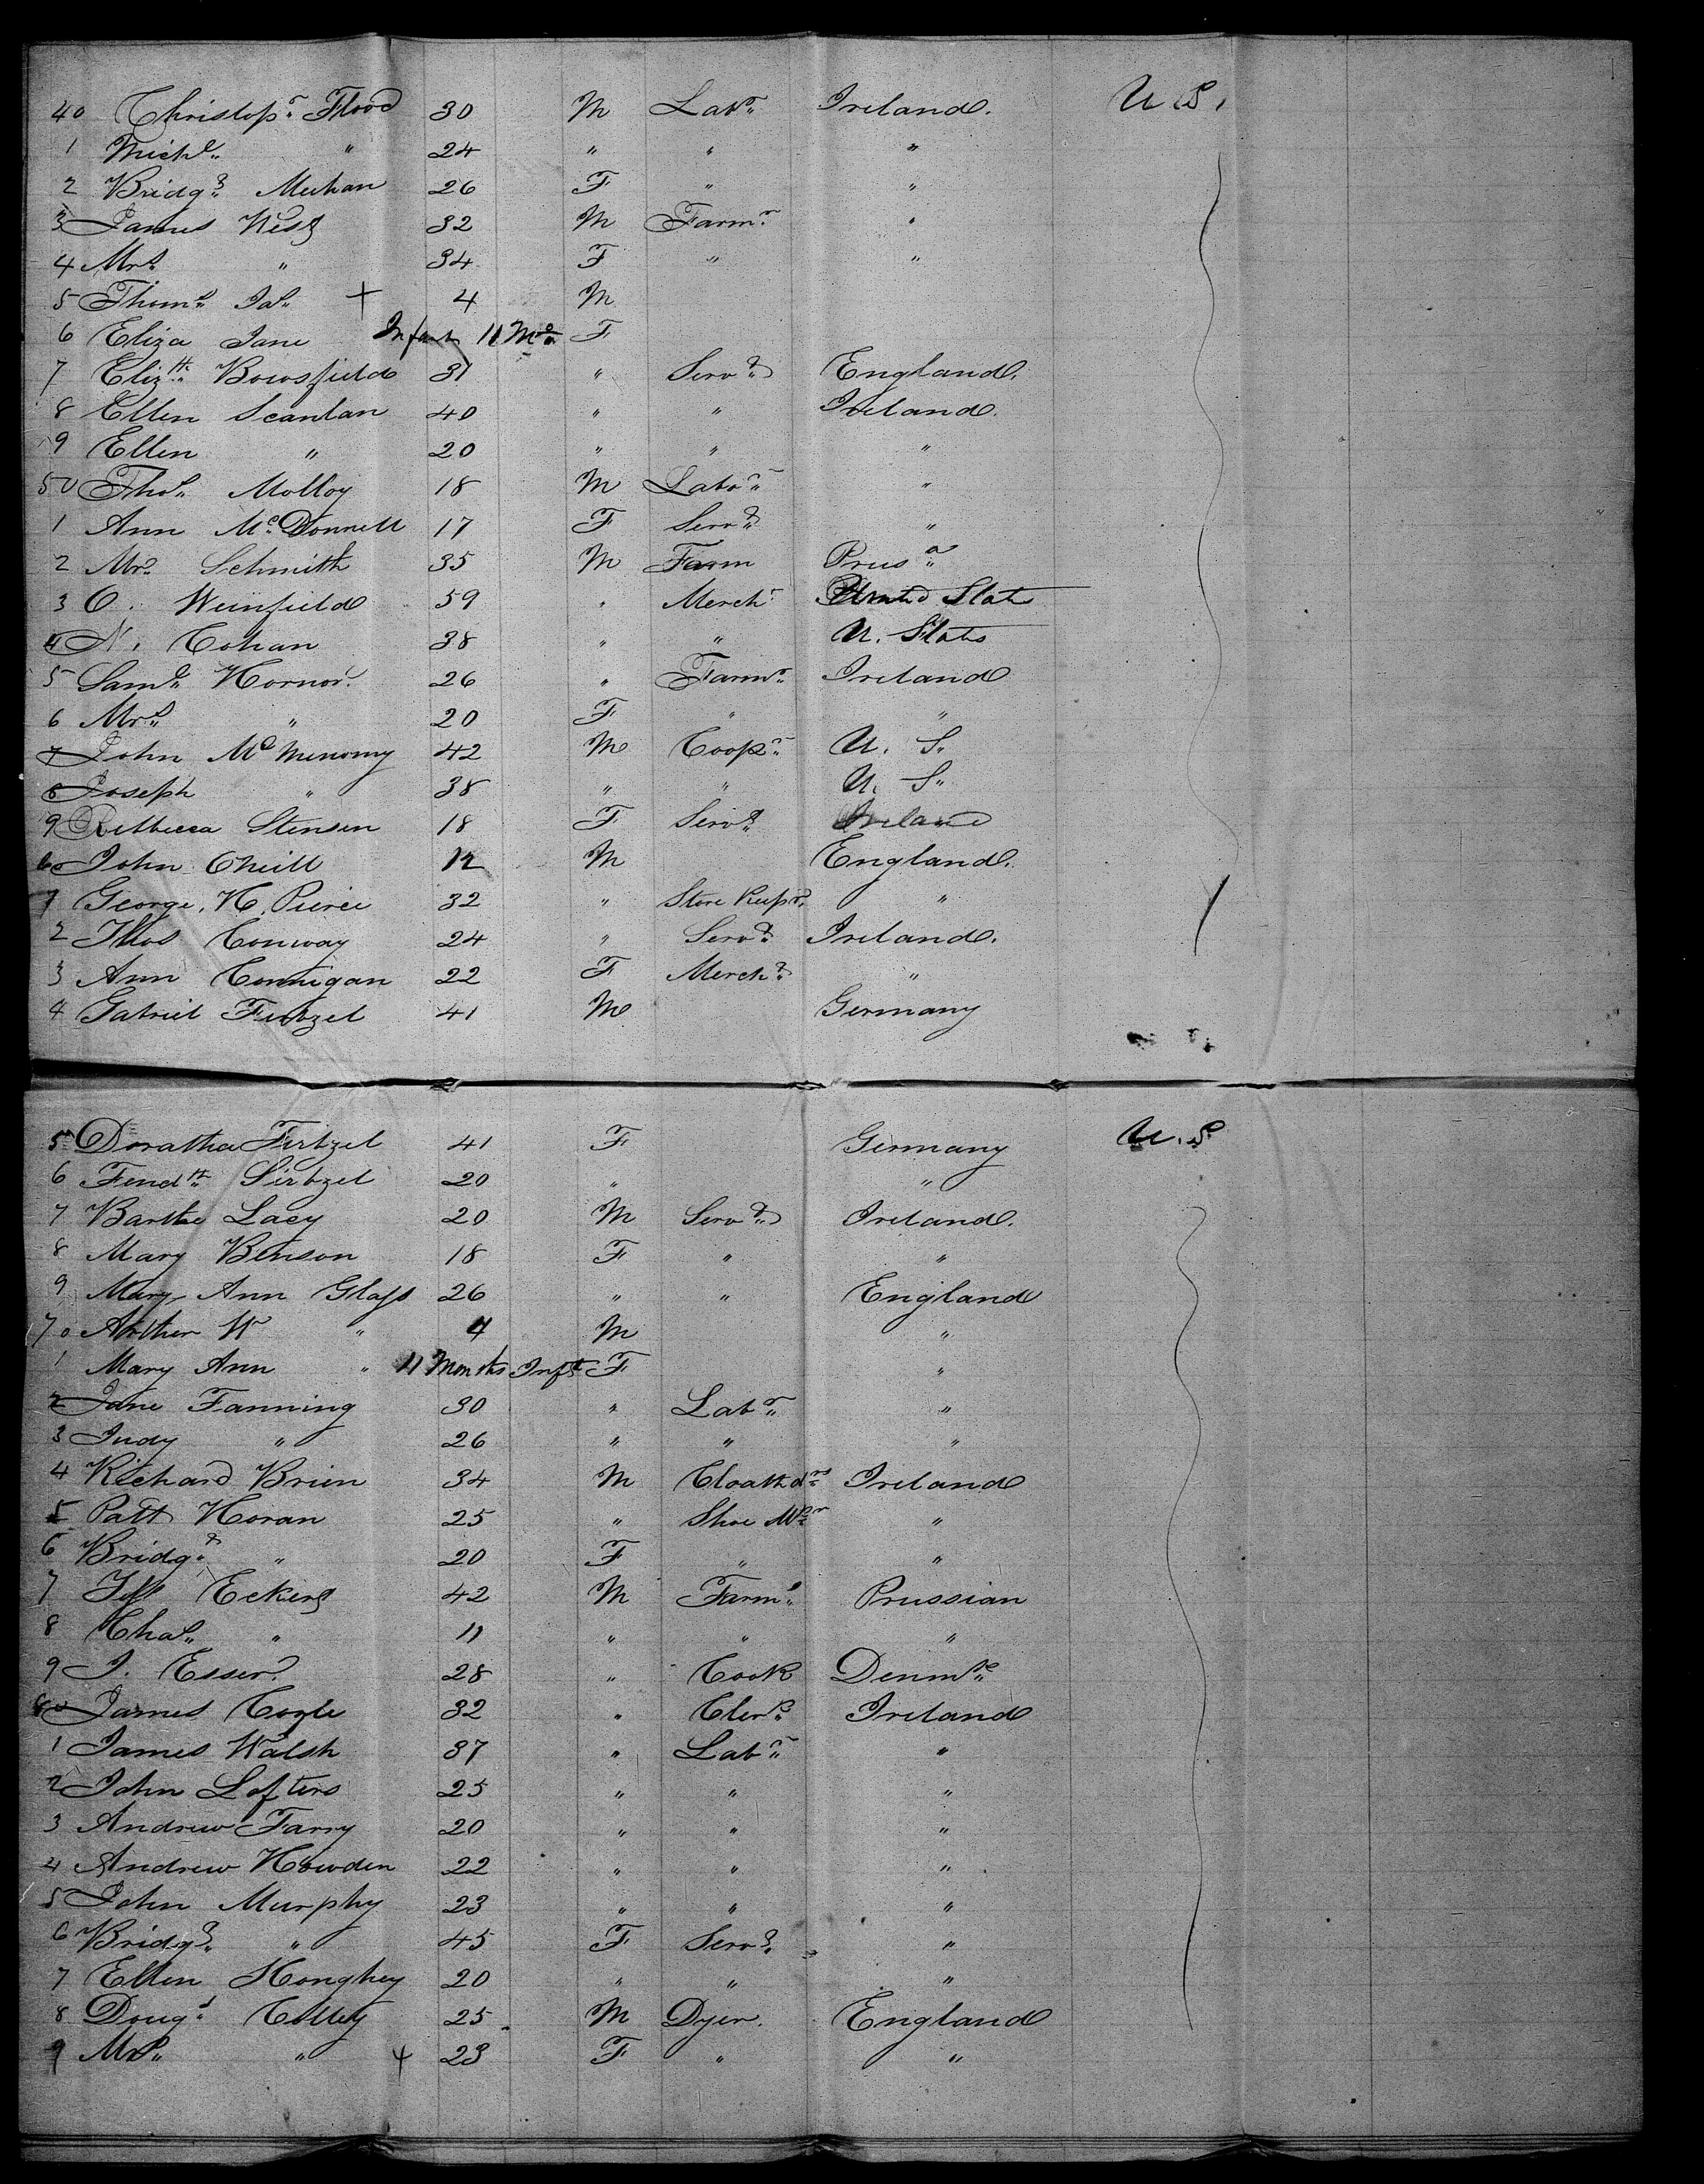 40 Christopr Flood 30 M Labr Ireland. U.S.
1 Michl " 24 " " "
2 Bridgt Meehan 26 F " "
3 James West 32 M Farmr "
4 Mrs " 34 F " "
5 Thoms Jas + 4 M
6 Eliza Jane Infant 11 Mos F
7 Elizth Bowsfield 31 " Servt England.
8 Ellen Scanlan 40 " " Ireland.
9 Ellen " 20 " " "
50 Thos Molloy 18 M Labor "
1 Ann McDonnell 17 F Servt "
2 Mr Schmith 35 M Farm Prusa
3 O. Weinfield 59 " Mercht United States
4 N. Cohan 38 " " U. States
5 Saml Hornor 26 " Farmr Ireland
6 Mrs " 20 F " "
7 John McMenomy 42 M Coopr U. S.
8 Joseph " 38 " " U. S.
9 Rebbecca Stensen 18 F Servt Ireland
60 John Oneill 12 M England.
1 George. H. Pierce 32 " Store Keepr. "
2 Thos Conway 24 " Servt Ireland.
3 Ann Connigan 22 F Mercht "
4 Gabriel Fertzel 41 M Germany
5 Doratha Fertzel 41 F Germany U.S.
6 20 " "
7 Barthe Lacy 20 M Servt Ireland.
8 Mary Benson 18 F " "
9 Mary Ann Glass 26 " " England
70 Arther W " 4 M "
1 Mary Ann " 11 Months Inft F "
2 Jane Fanning 30 " Labr "
3 Judy " 26 " " "
4 Richard Brien 34 M Ireland
5 Patt Horan 25 " Shoe Mkr "
6 Bridgt " 20 F " "
7 Eckert 42 M Farmr Prussian
8 Chas " 11 " " "
9 J. Esser 28 " Cook Denmk
80 James Cogle 32 " Clerk Ireland
1 James Walsh 37 " Labr "
2 John Lofters 25 " " "
3 Andrew Farry 20 " " "
4 Andrew Howden 22 " " "
5 John Murphy 23 " " "
6 Bridgt " 45 F Servt "
7 Ellen Honghey 20 " " "
8 Dougs Colley 25 M Dyer. England
9 Mrs " + 23 F " "